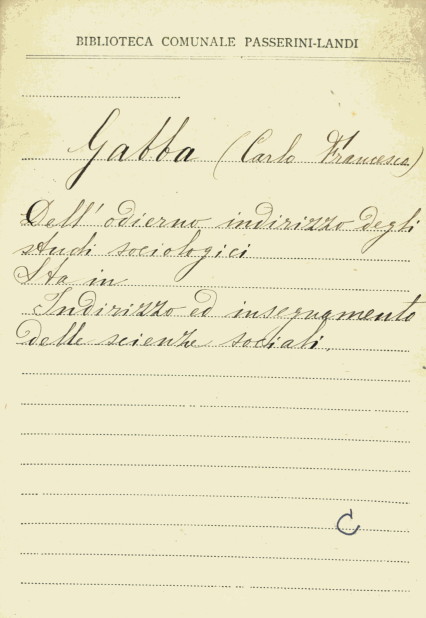 BIBLIOTECA COMUNALE PASSERINI-LANDI
Gabba (Carlo Francesco)
Dell'odierno indirizzo degli
studi sociologici
Sta in
Indirizzo ed insegnamento
delle scienze sociali.
C